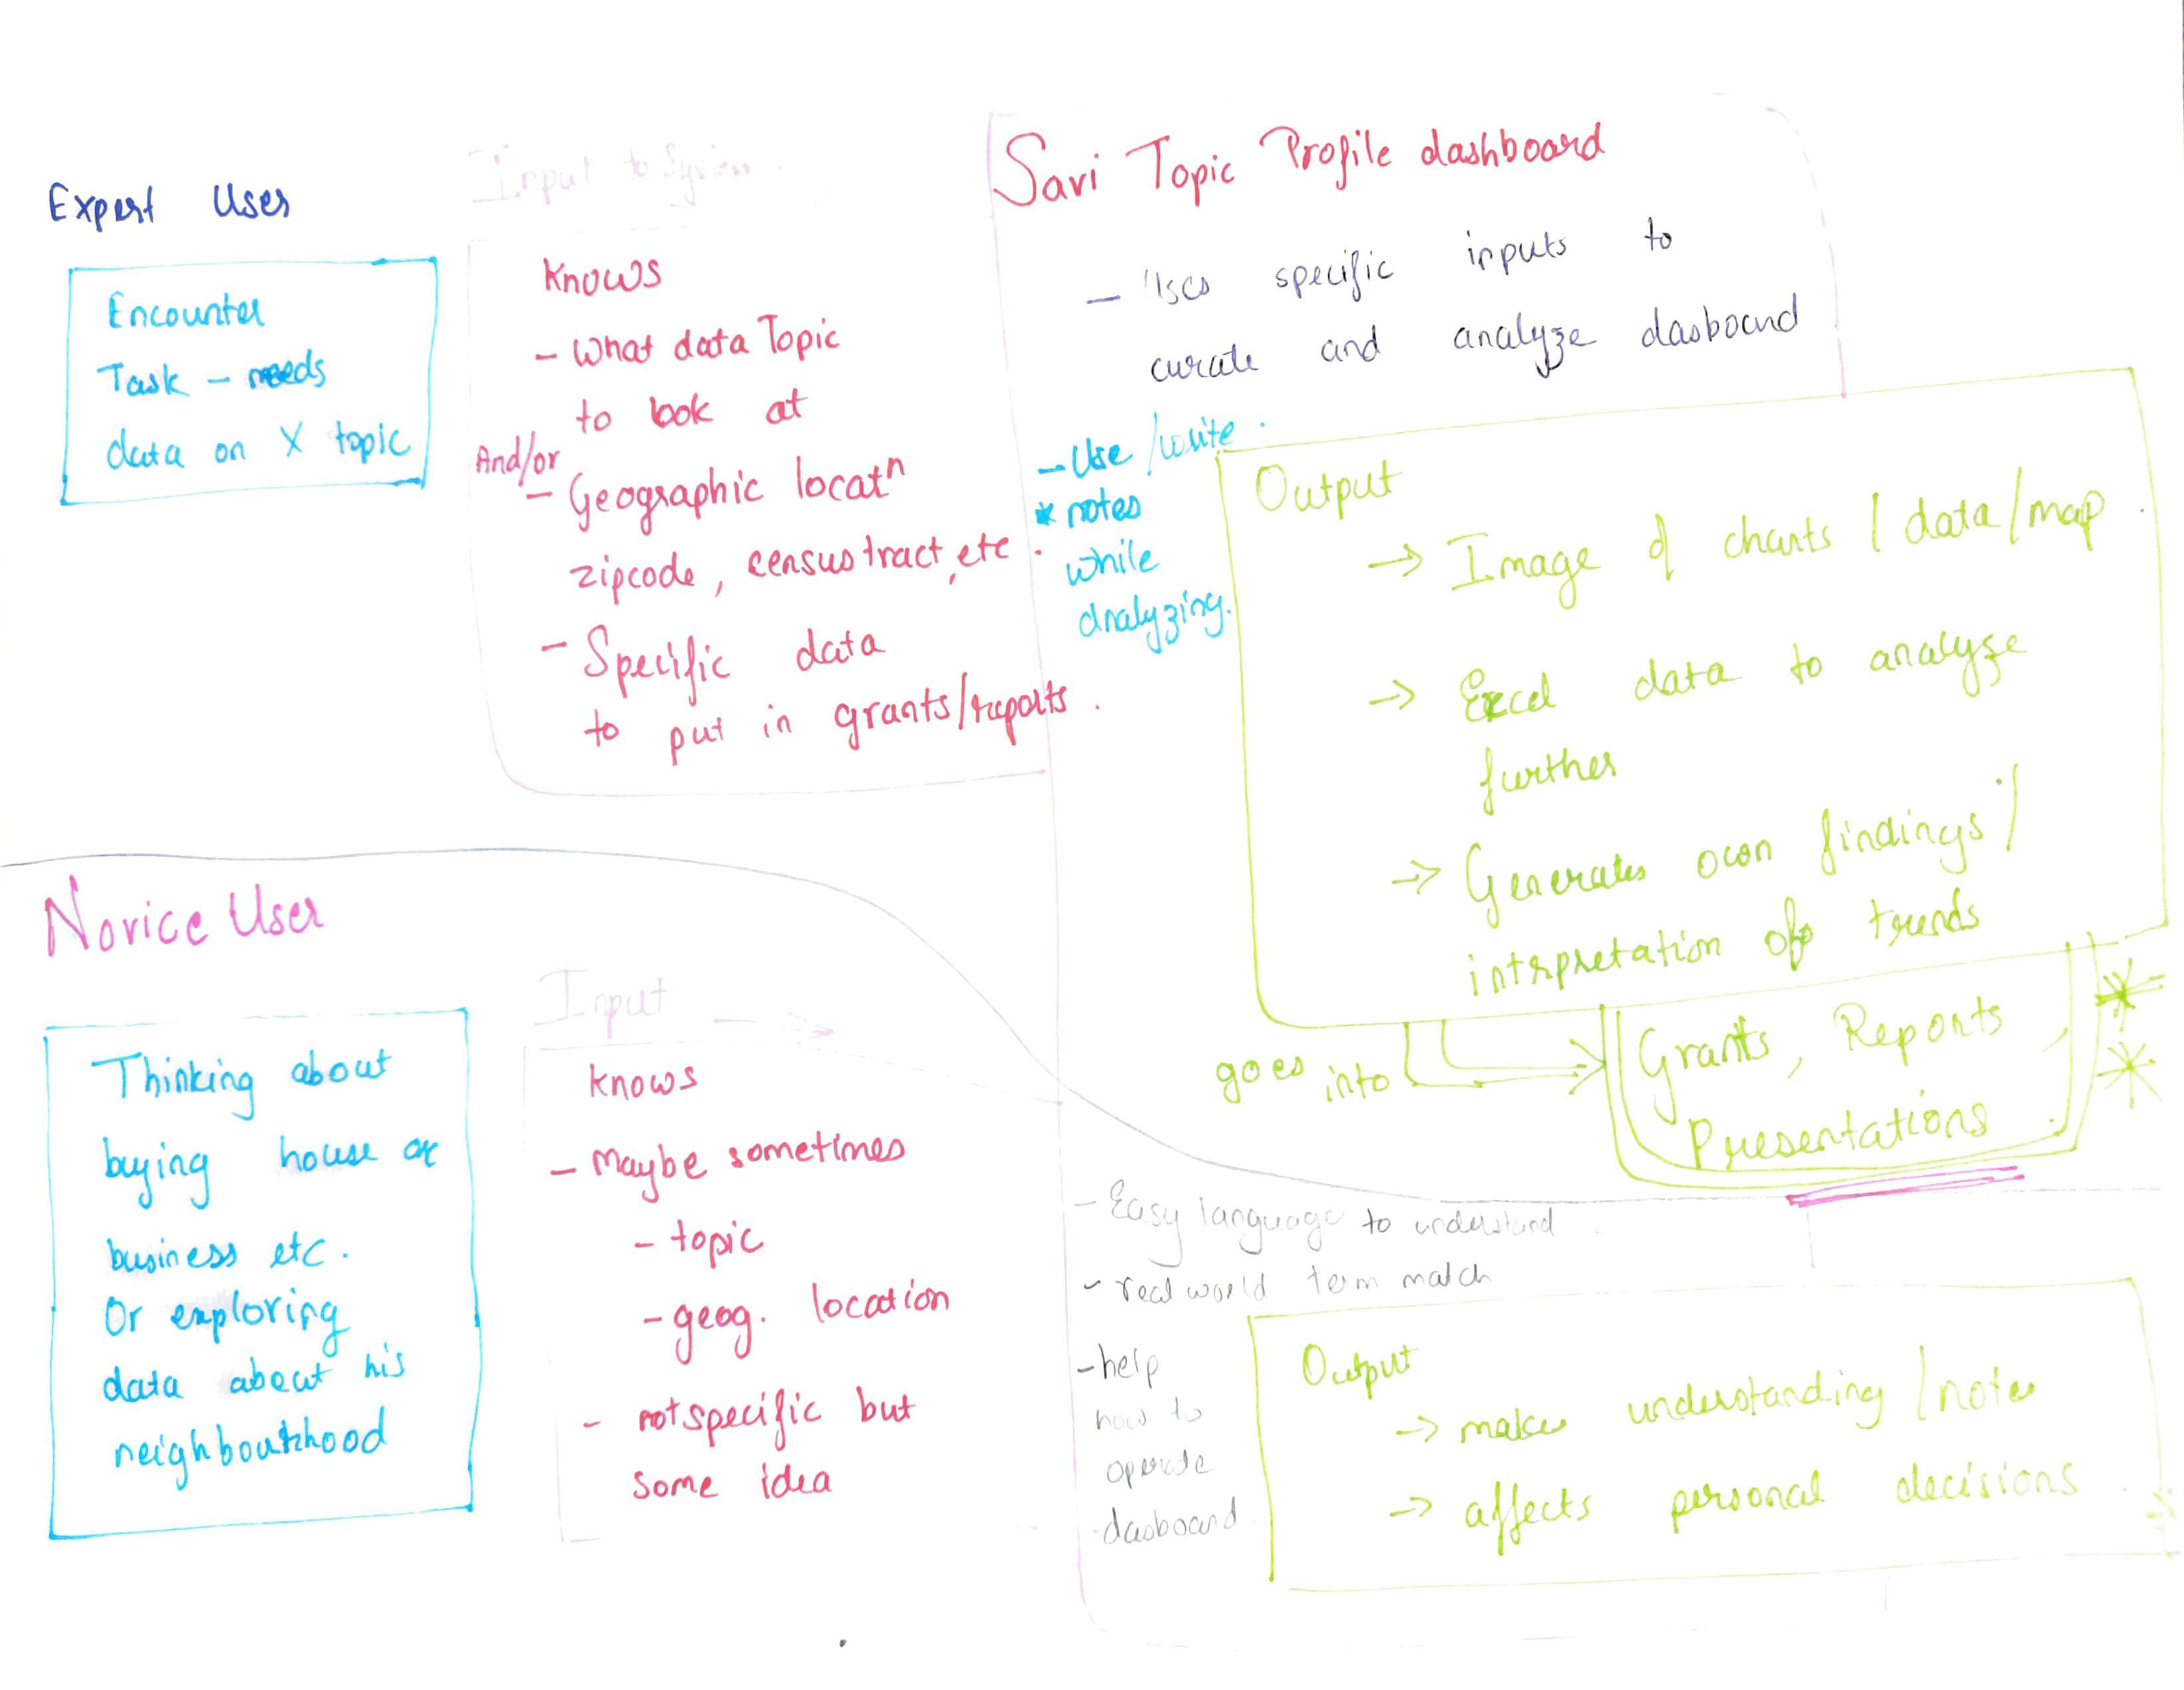 Expert User
Encounter
Task – needs
data on X topic
Input to System
Knows
– What data Topic
to look at
And/or
– Geographic locatn
zipcode, census tract, etc.
– Specific data
to put in grants/reports.
Savi Topic Profile dashboard
– Uses specific inputs to
curate and analyze dasboard
– Use/write
* notes
while
analyzing.
Output
→ Image of charts / data/map.
→ Excel data to analyze
further
→ Generates own findings/
intrpretation of trends
goes into
Grants, Reports,
Presentations
Novice User
Thinking about
buying house or
business etc.
Or exploring
data about his
neighbourhood
Input
knows
– Maybe sometimes
– topic
– geog. location
– not specific but
some idea
– Easy language to understand
– real world term match
– help
how to
operate
dasboard
Output
→ makes understanding / notes
→ affects personal decisions